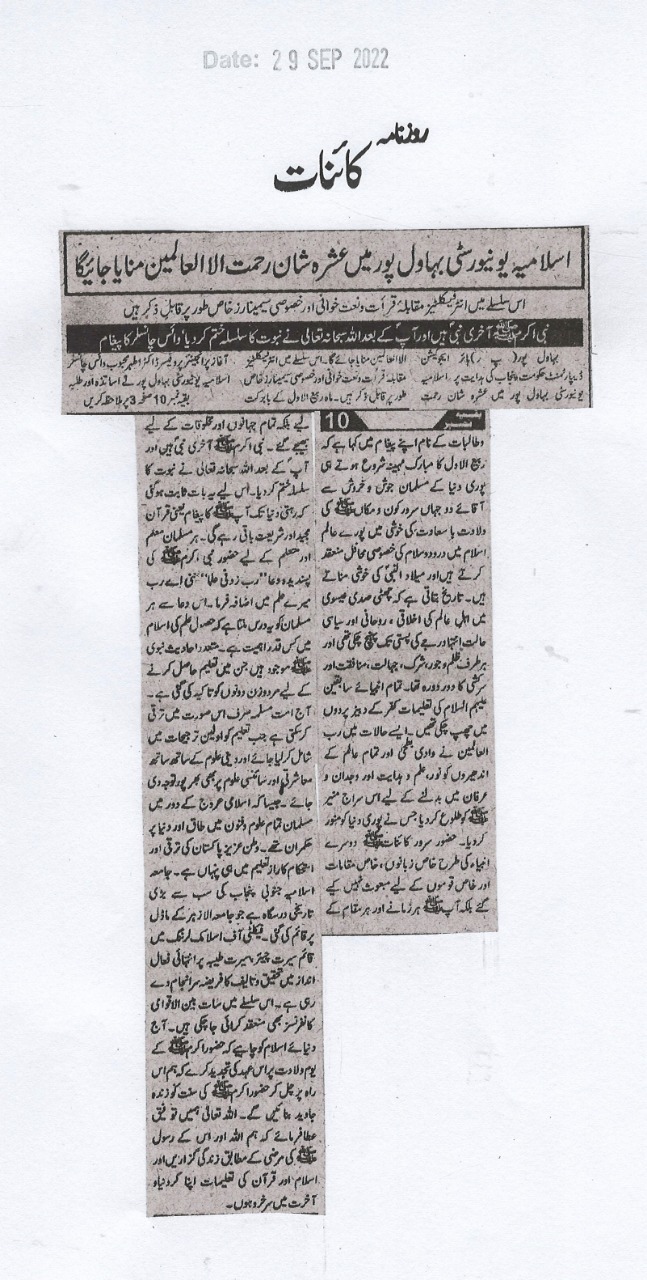 Date: 29 SEP 2022
روزنامہ
کائنات
اسلامیہ یونیورسٹی بہاول پور میں عشرہ شان رحمت الا العالمین منایا جائیگا
اس سلسلے میں انٹر فیکلٹیز مقابلۂ قرأت و نعت خوانی اور خصوصی سیمینارز خاص طور پر قابل ذکر ہیں
نبی اکرم ﷺ آخری نبی ہیں اور آپؐ کے بعد اللہ سبحانہ تعالی نے نبوت کا سلسلہ ختم کر دیا، وائس چانسلر کا پیغام
بہاول پور (پ ر) ہائر ایجوکیشن
ڈیپارٹمنٹ حکومت پنجاب کی ہدایت پر اسلامیہ
یونیورسٹی بہاول پور میں عشرہ شان رحمت
الا العالمین منایا جائے گا۔ اس سلسلے میں انٹر فیکلٹیز
مقابلہ قرأت و نعت خوانی اور خصوصی سیمینارز خاص
طور پر قابل ذکر ہیں۔ ماہ ربیع الاول کے بابرکت
آغاز پر انجینئر پروفیسر ڈاکٹر اطہر محبوب وائس چانسلر
اسلامیہ یونیورسٹی بہاول پور نے اساتذہ اور طلبہ
بقیہ نمبر 10 صفحہ 3 پر ملاحظہ کریں
بقیہ نمبر 10
و طالبات کے نام اپنے پیغام میں کہا ہے کہ
ربیع الاول کا مبارک مہینہ شروع ہوتے ہی
پوری دنیا کے مسلمان جوش و خروش سے
آقائے دو جہاں سرور کون و مکاں ﷺ کی
ولادت با سعادت کی خوشی میں پورے عالم
اسلام میں درود و سلام کی خصوصی محافل منعقد
کرتے ہیں اور میلاد النبیؐ کی خوشی مناتے
ہیں۔ تاریخ بتاتی ہے کہ چھٹی صدی عیسوی
میں اہل عالم کی اخلاقی، روحانی اور سیاسی
حالت انتہا درجے کی پستی تک پہنچ چکی تھی اور
ہر طرف ظلم و جور، شرک، جہالت، منافقت اور
سرکشی کا دور دورہ تھا۔ تمام انبیائے سابقین
علیہم السلام کی تعلیمات کفر کے دبیز پردوں
میں چھپ چکی تھیں۔ ایسے حالات میں رب
العالمین نے وادی بطحیٰ اور تمام عالم کے
اندھیروں کو نور، علم و ہدایت اور وجدان و
عرفان میں بدلنے کے لیے اس سراج منیر
ﷺ کو طلوع کر دیا جس نے پوری دنیا کو منور
کر دیا۔ حضور سرور کائنات ﷺ دوسرے
انبیاء کی طرح خاص زبانوں، خاص مقامات
اور خاص قوموں کے لیے مبعوث نہیں کیے
گئے بلکہ آپ ﷺ ہر زمانے اور ہر مقام کے
لیے بلکہ تمام جہانوں اور مخلوقات کے لیے
بھیجے گئے۔ نبی اکرم ﷺ آخری نبی ہیں اور
آپؐ کے بعد اللہ سبحانہ تعالی نے نبوت کا
سلسلہ ختم کر دیا۔ اس لیے یہ بات ثابت ہو گئی
کہ رہتی دنیا تک آپ ﷺ کا پیغام یعنی قرآن
مجید اور شریعت باقی رہے گی۔ ہر مسلمان معلم
اور متعلم کے لیے حضور نبی اکرم ﷺ کی
پسندیدہ دعا "رب زدنی علما" یعنی اے رب
میرے علم میں اضافہ فرما۔ اس دعا سے ہر
مسلمان کو یہ درس ملتا ہے کہ حصول علم کی اسلام
میں کس قدر اہمیت ہے۔ متعدد احادیث نبوی
ﷺ موجود ہیں جن میں تعلیم حاصل کرنے
کے لیے مرد و زن دونوں کو تاکید کی گئی ہے۔
آج امت مسلمہ صرف اس صورت میں ترقی
کر سکتی ہے جب تعلیم کو اولین ترجیحات میں
شامل کر لیا جائے اور دینی علوم کے ساتھ ساتھ
معاشرتی اور سائنسی علوم پر بھی بھرپور توجہ دی
جائے۔ جیسا کہ اسلامی عروج کے دور میں
مسلمان تمام علوم و فنون میں طاق اور دنیا پر
حکمران تھے۔ وطن عزیز پاکستان کی ترقی اور
استحکام کا راز تعلیم میں ہی پنہاں ہے۔ جامعہ
اسلامیہ جنوبی پنجاب کی سب سے بڑی
تاریخی درسگاہ ہے جو جامعہ الازہر کے ماڈل
پر قائم کی گئی۔ فیکلٹی آف اسلامک لرننگ میں
قائم سیرت چیئر سیرت طیبہ پر انتہائی فعال
انداز میں تحقیق و تالیف کا فریضہ سر انجام دے
رہی ہے۔ اس سلسلے میں سات بین الاقوامی
کانفرنسز بھی منعقد کرائی جا چکی ہیں۔ آج
دنیائے اسلام کو چاہیے کہ حضور اکرم ﷺ کے
یوم ولادت پر اس عہد کی تجدید کرے کہ ہم اس
راہ پر چل کر حضور اکرم ﷺ کی سنت کو زندہ
جاوید بنائیں گے۔ اللہ تعالی ہمیں توفیق
عطا فرمائے کہ ہم اللہ اور اس کے رسول
ﷺ کی مرضی کے مطابق زندگی گزاریں اور
اسلام اور قرآن کی تعلیمات اپنا کر دنیا و
آخرت میں سرخرو ہوں۔